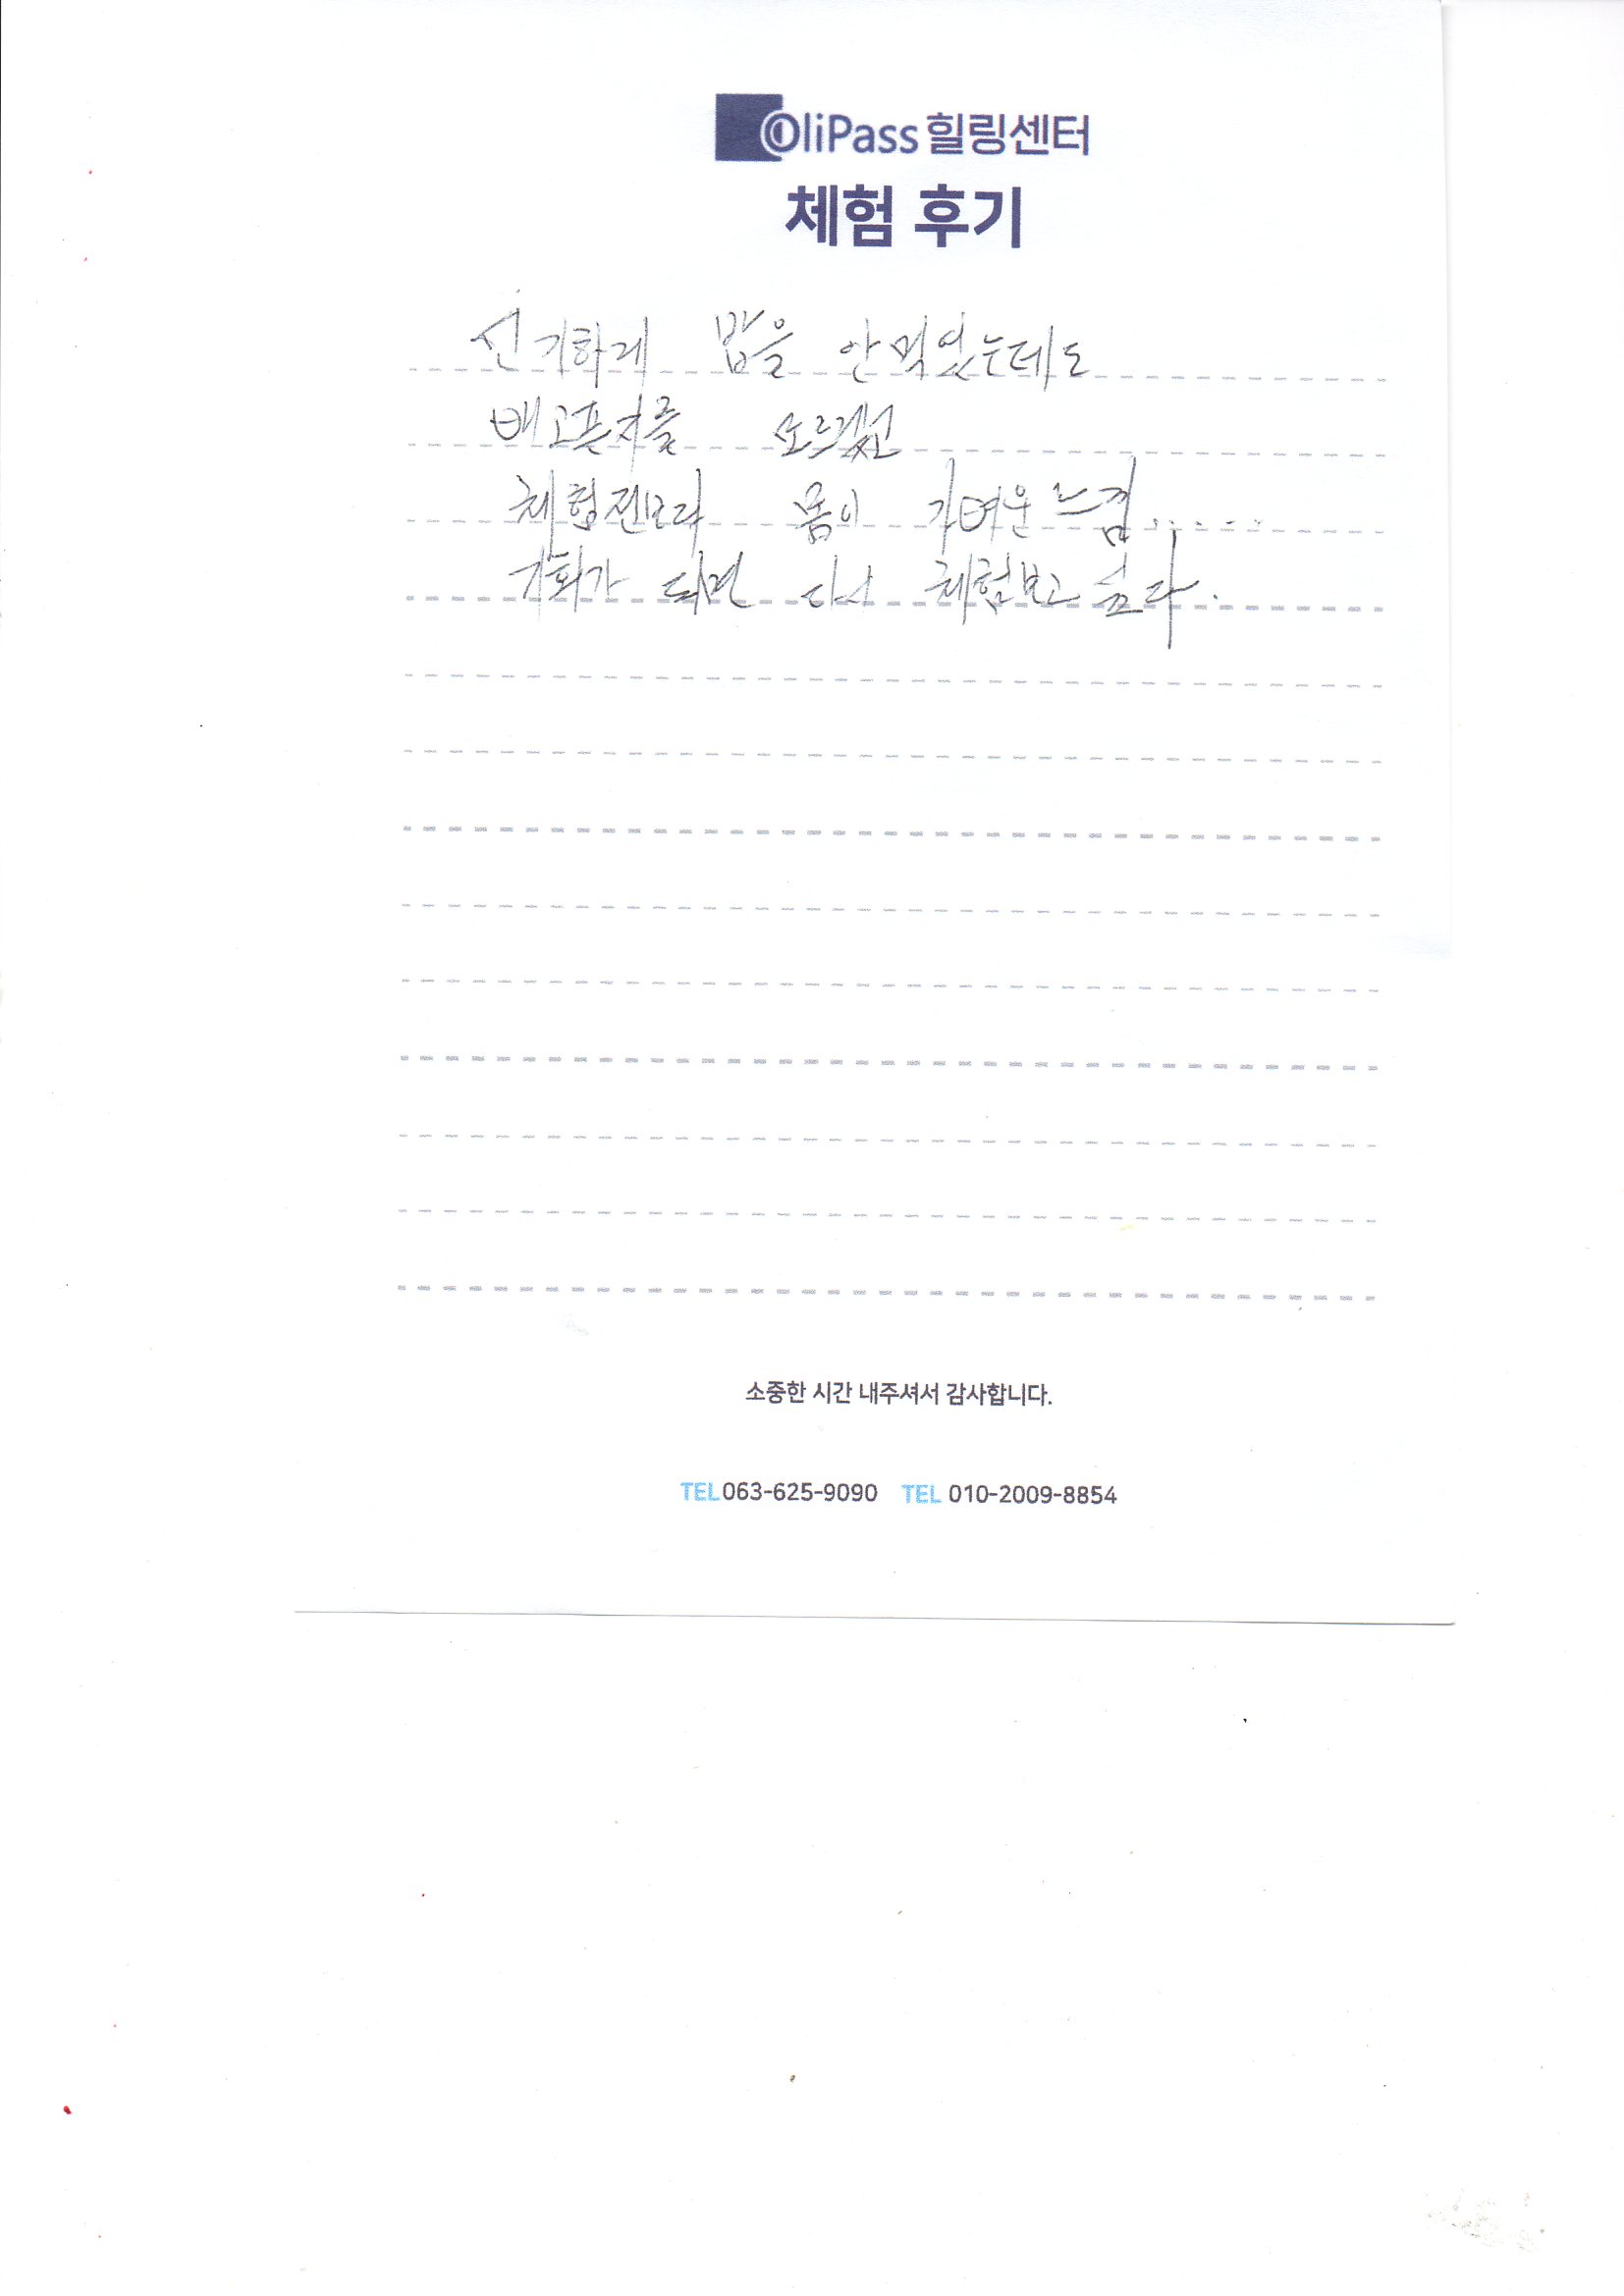 OliPass 힐링센터
체험 후기
신기하게 밥을 안먹었는데도
배고픈지를 모르겠고
체험전보다 몸이 가벼운 느낌......
기회가 되면 다시 체험보고 싶다.
소중한 시간 내주셔서 감사합니다.
TEL 063-625-9090 TEL 010-2009-8854